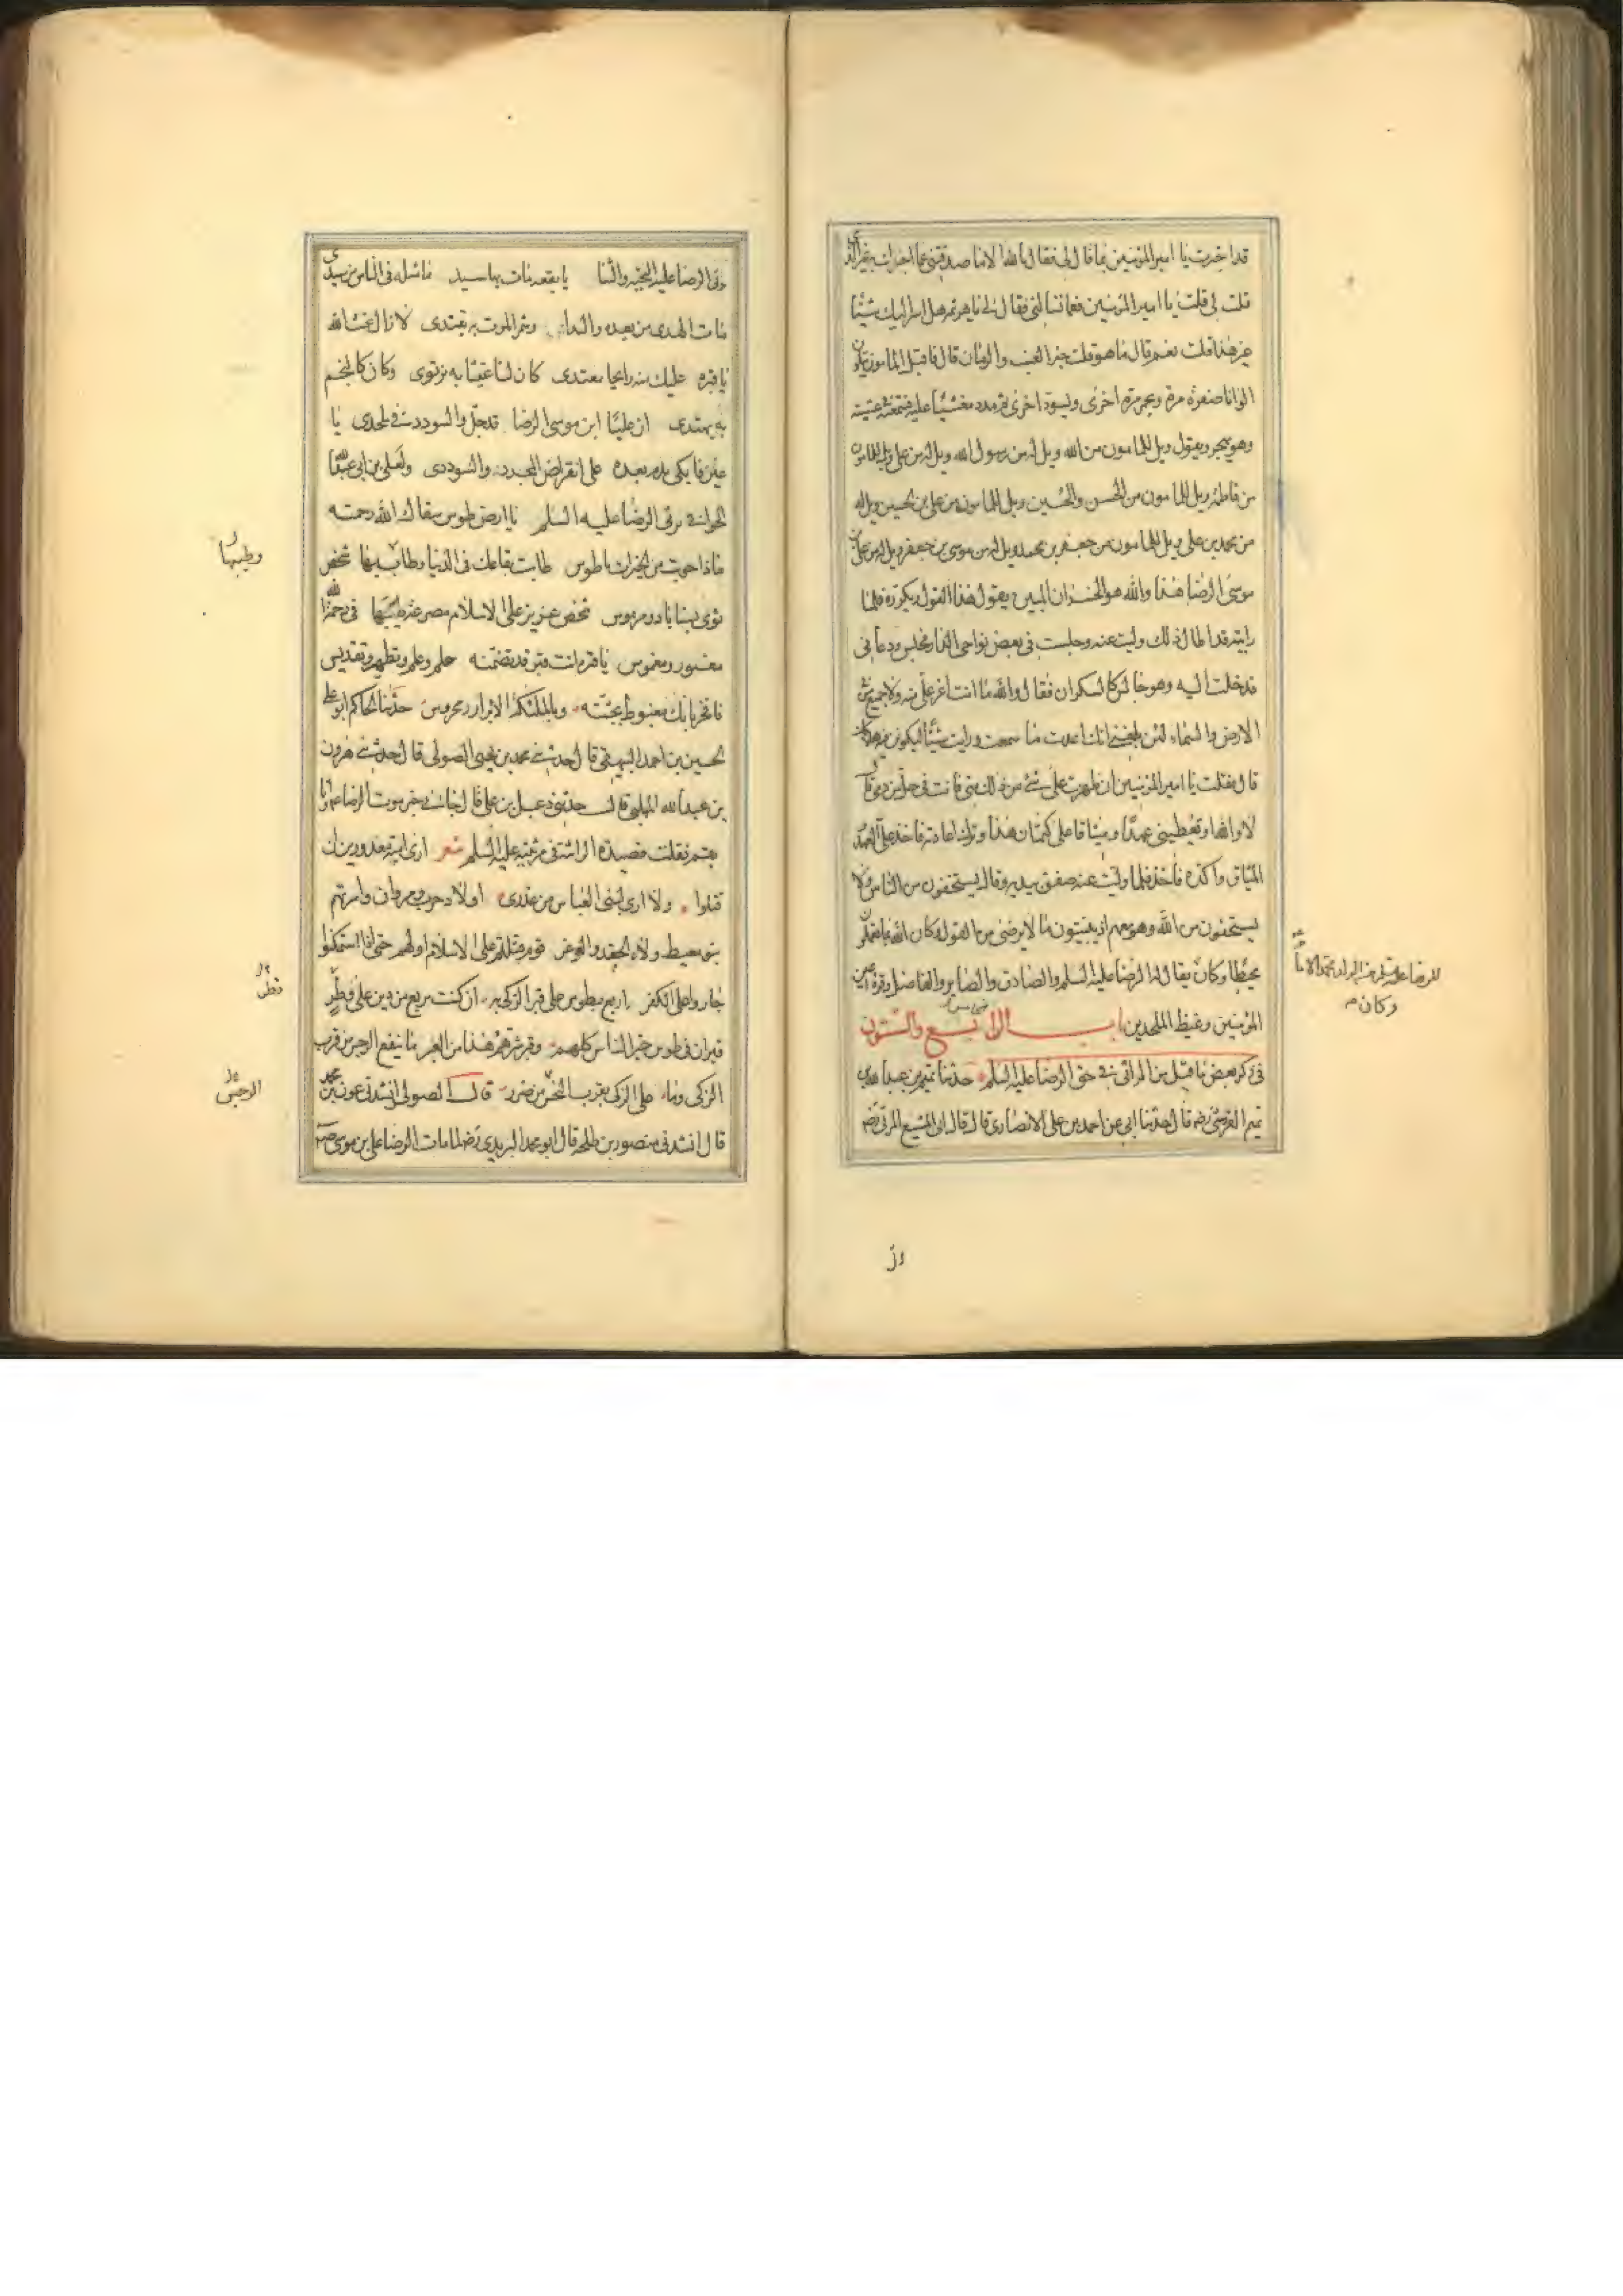 قد اخبرت يا امير المؤمنين بما قال لي فقال بالله الا ما صدقتني عما اخبرك به غير الذي
قلت لي قلت يا امير المؤمنين فما تسالني فقال لي يا هرثمه هل اسر اليك شيئا
غير هذا قلت نعم قال ما هو قلت خبر العنب والرمان قال فاقبل المامون يتلون
الوانا صفرة مرة وحمرة اخرى ويسود اخرى ثم مدد مغشيا عليه فسمعته في غشيته
وهو يهجر ويقول ويل للمامون من الله ويل له من رسول الله ويل له من علي ويل للمامون
من فاطمه ويل للمامون من الحسن والحسين ويل للمامون من علي بن الحسين ويل له
من محمد بن علي ويل للمامون من جعفر بن محمد ويل له من موسى بن جعفر ويل له من علي بن
موسى الرضا هذا والله هو الخسران المبين يقول هذا القول ويكرره فلما
رايته قد اطال ذلك وليت عنه وجلست في بعض نواحي الدار فجلس ودعا بي
فدخلت اليه وهو جالس كالسكران فقال والله ما انت اعز علي منه ولا جميع من في
الارض والسماء لئن بلغني انك اعدت ما سمعت ورايت شيئا ليكونن هلاكك
قال فقلت يا امير المؤمنين ان ظهرت على شئ من ذلك مني فانت في حل من دمي قال
لا والله او تعطيني عهدا وميثاقا على كتمان هذا وترك اعادته فاخذ علي العهد
الميثاق واكده فاخذ فلما وليت عنه صفق بيديه وقال يستخفون من الناس ولا
يستخفون من الله وهو معهم اذ يبيتون ما لا يرضى من القول وكان الله بما يعملون
محيطا وكان يقال له الرضا عليه السلم والصادق والصابر والفاضل وقرة اعين
المؤمنين وغيظ الملحدين باب الرابع والستون
في ذكر بعض ما قيل من المراثي في حق الرضا عليه السلم حدثنا تميم بن عبد الله بن
تميم القرشي رضه قال حدثنا ابي عن احمد بن علي الانصاري قال قال ابن المشيع المرقي رضه
وكان
يرثي الرضا عليه التحيه والثنا يا بقعه مات بها سيد ما مثله في الناس من سيدي
مات الهدى من بعده والندا وشمر الموت به يقتدى لا زال غيث الله
يا قبره عليك منه رايحا معتدى كان لنا غيثا به نرتوى وكان كالنجم
به يهتدى ان عليا ابن موسى الرضا قد حل والسودد في ملحدى يا
عين فابكي بدم بعده على انقراض المجد والسوددى ولعلي بن ابي عبد الله
الخوافي يرثي الرضا عليه السلم يا ارض طوس سقاك الله رحمته
ماذا حويت من الخيرات يا طوس طابت بقاعك في الدنيا وطاب بها شخص
ثوى بسناباد مرموس شخص عزيز على الاسلام مصرعه طيبها في رحمة الله
مغمور ومغموس يا قبره انت قبر قد تضمنه حلم وعلم وتطهير وتقديس
فافخر بانك مغبوط بجثته وبالملئكة الابرار محروس حدثنا الحاكم ابو علي
الحسين بن احمد البيهقي قال حدثني محمد بن يحيى الصولي قال حدثني هرون
بن عبد الله المهلبي قال حدثني دعبل بن علي قال جاءني خبر موت الرضا عم وانا
بقم فقلت قصيدة الرائيه في مرثيته عليه السلم شعر ارى اميه معذورين ان
قتلوا ولا ارى لبني العباس من عذرى اولاد حرب ومروان واسرتهم
بنو معيط ولاه الحقد والوغر قوم قتلتم على الاسلام اولهم حتى اذا استمكنوا
جازوا على الكفر اربع بطوس على قبر الزكي به ان كنت تربع من دين على فطر
قبران في طوس خير الناس كلهم وقبر شرهم هذا من العبر ما ينفع الرجس من قرب
الزكي وما على الزكي بقرب النجس من ضرر قال الصولي انشدني عون بن محمد
قال انشدني منصور بن طلحه قال ابو محمد اليزيدي رضه لما مات الرضا علي بن موسى
وطيبها
الرجس